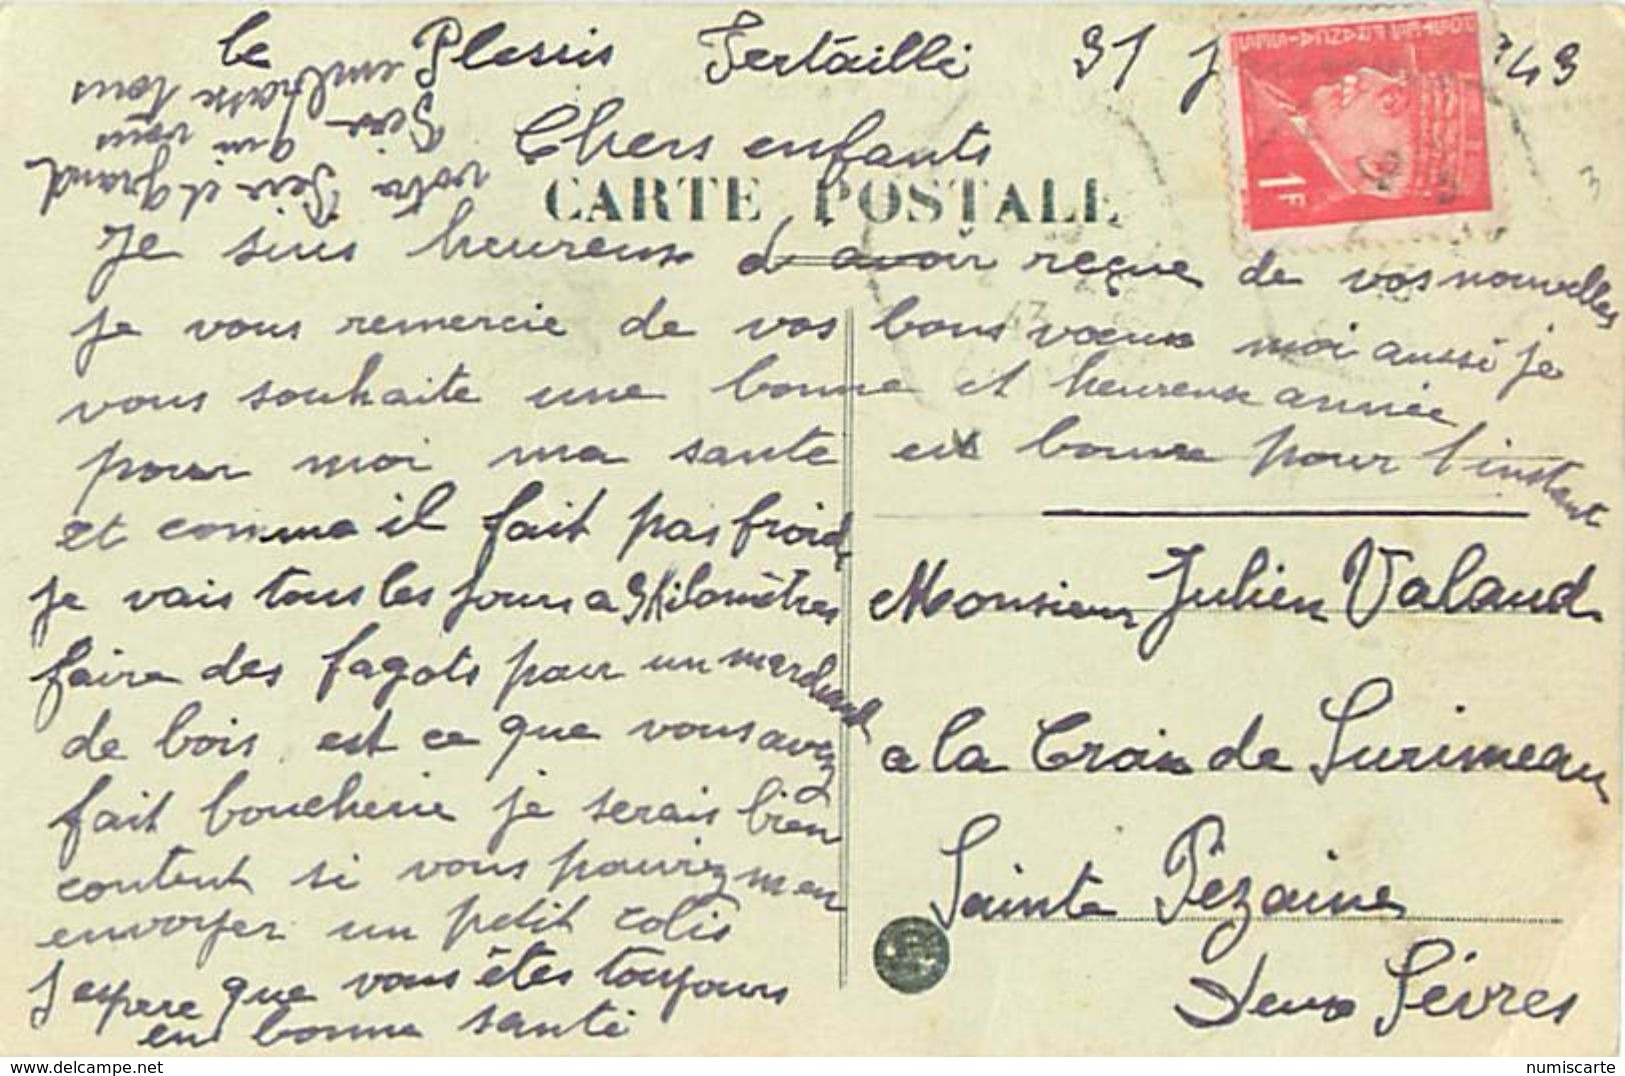 Le Plessis Fertailli 31 J 1943
Chers enfants
CARTE POSTALE
Je suis heureux d avoir reçue de vos nouvelles
je vous remercie de vos bons voeux moi aussi je
vous souhaite une bonne et heureuse année
pour moi ma sante est bonne pour l'instant
et comme il fait pas froid
je vais tous les jours a 3 kilomètres
faire des fagots pour un marchand
de bois est ce que vous avez
fait boucherie je serais bien
content si vous pouviez m en
envoyer un petit colis
j espere que vous êtes toujours
en bonne santé
votre Pere et grand
Pere qui vous
embrasse tous
1F
Monsieur Julien Valaud
a la Croix de Surimeau
Sainte Pézaine
Deux Sévres
3
numiscarte.com
numiscarte